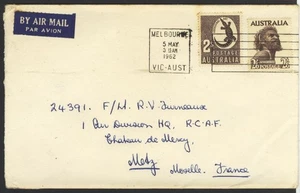 BY AIR MAIL
PAR AVION
MELBOURNE
5 MAY
1962
VIC-AUST
2/-
POSTAGE
AUSTRALIA
AUSTRALIA
2/6
24391. F/Lt. R.V. Furneaux
1 Air Division HQ, R.C.A.F.
Chateau de Mercy
Metz
Moselle. France